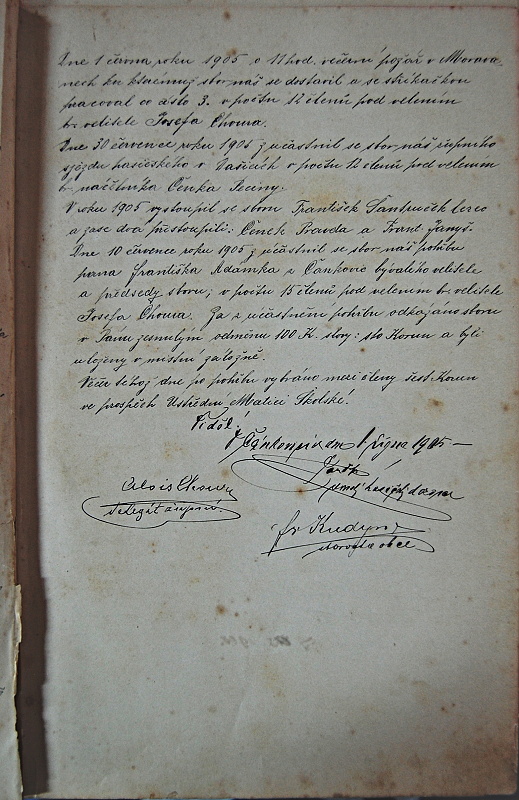 Dne 1 června roku 1905 o 11 hod. večerní požár v Morava-
nech ku kterémuž sbor náš se dostavil a se stříkačkou
pracoval co čislo 3. v počtu 12 členů pod velením
br. velitele Josefa Choura.
Dne 30 července roku 1905 zúčastnil se sbor náš župního
sjezdu hasičského v Dašicích v počtu 12 členů pod velením
br. náčelníka Čeňka Peciny.
V roku 1905 vystoupil se sboru František
a zase dva přistoupili: Čeněk Pravda a Frant. Janyš.
Dne 10 července roku 1905 zúčastnil se sbor náš pohřbu
pana Františka Adamka z Čankovic bývalého velitele
a předsedy sboru, v počtu 15 členů pod velením br. velitele
Josefa Choura. Za zúčastnění pohřbu odkázáno sboru
v Panu zesnulým odměnu 100 K. slovy: sto Korun a byli
uloženy v místní záložně.
Večer téhož dne po pohřbu vybráno mezi členy šest Korun
ve prospěch Ústřední Matici Školské!
Viděl!
V Čankovicích dne 1. října 1905
Alois
delegát župní
Fr. Kudyn
starosta obce